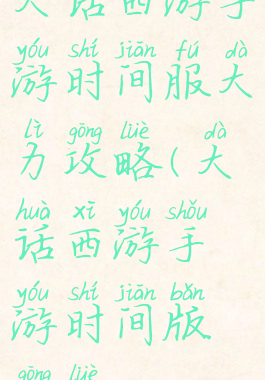 大话西游手
yóu shí jiān fú dà
游时间服大
lì gōng lüè dà
力攻略(大
huà xī yóu shǒu
话西游手
yóu shí jiān bǎn
游时间版
gōng lüè